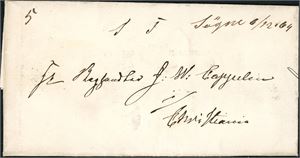 5
S T Søgne 9/12 64
Hr Kjøbmand J. W. Cappelen
i/
Christiania